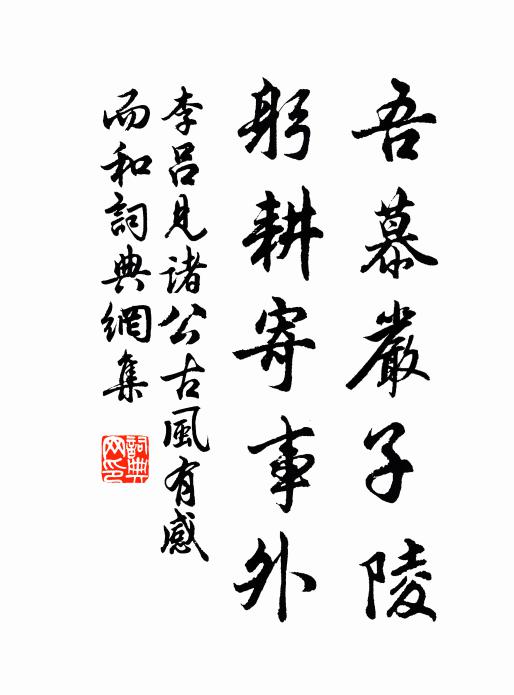 吾慕嚴子陵
躬耕寄事外
李呂見諸公古風有感
而和詞典網集
詞典網印